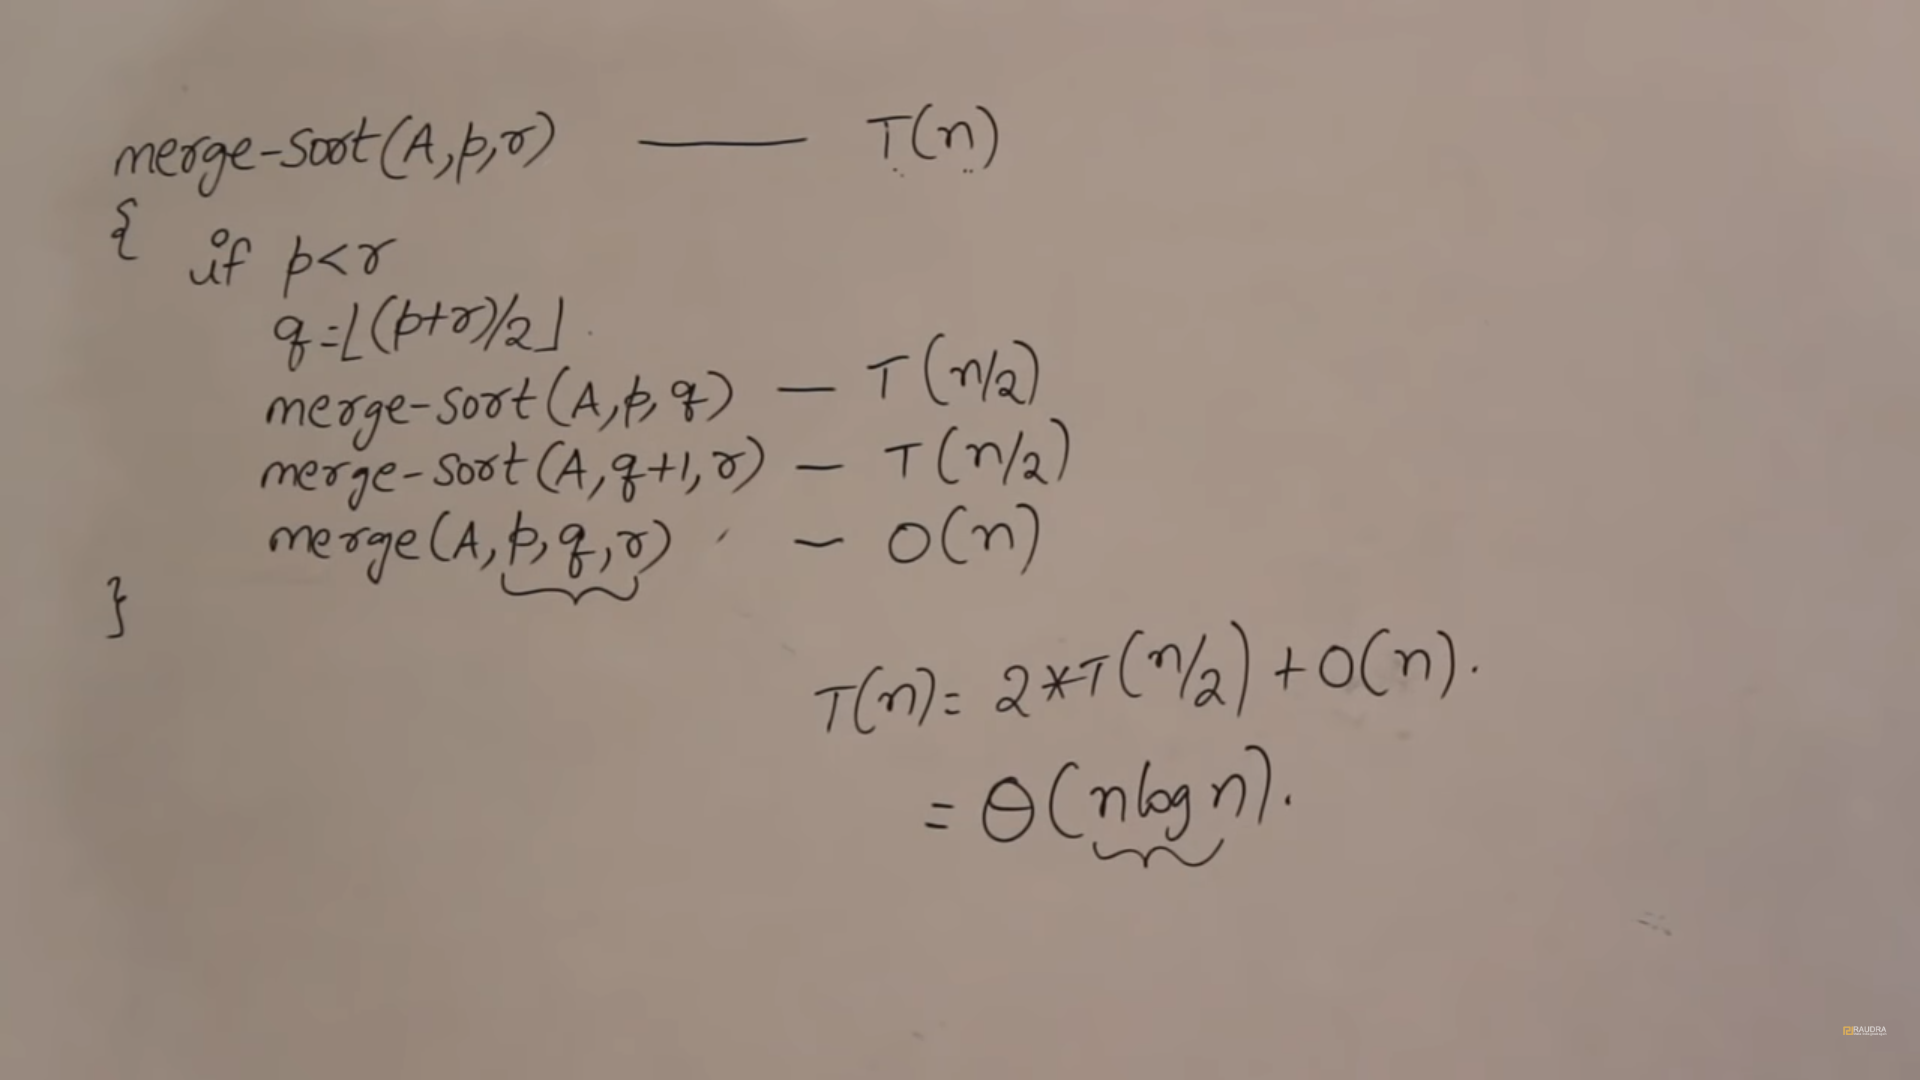 merge-sort(A,p,r) — T(n)
{ if p<r
q=⌊(p+r)/2⌋
merge-sort(A,p,q) — T(n/2)
merge-sort(A,q+1,r) — T(n/2)
merge(A,p,q,r) — O(n)
}
T(n)= 2*T(n/2)+O(n).
= Θ(nlogn).
RAUDRA